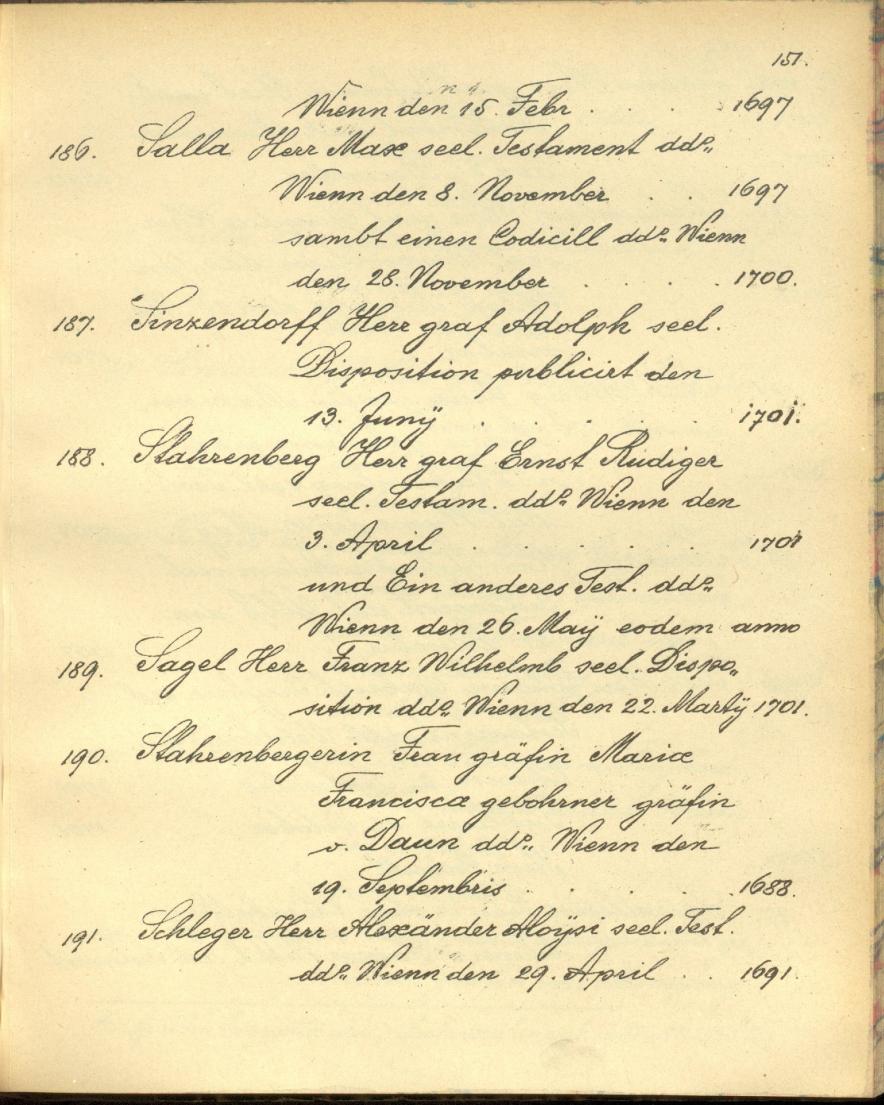 151.
Wienn den 15. Febr . . . . 1697
186. Salla Herr Max seel. Testament ddº„
Wienn den 8. November . . 1697
sambt einen Codicill ddº„ Wienn
den 28. November . . . . . 1700.
187. Sinzendorff Herr graf Adolph seel.
Disposition publicirt den
13. Junÿ . . . . 1701.
188. Stahrenberg Herr graf Ernst Rudiger
seel. Testam. ddº„ Wienn den
3. April . . . . . 1701
und Ein anderes Test. ddº„
Wienn den 26. Maÿ eodem anno
189. Sagel Herr Franz Wilhelmb seel. Dispo„
sition ddº„ Wienn den 22. Martÿ 1701.
190. Stahrenbergerin Frau gräfin Maria
Francisca gebohrner gräfin
v. Daun ddº„ Wienn den
19. Septembris . . . . 1688.
191. Schleger Herr Alexänder Aloÿsi seel. Test.
ddº„ Wienn den 29. April . . 1691.